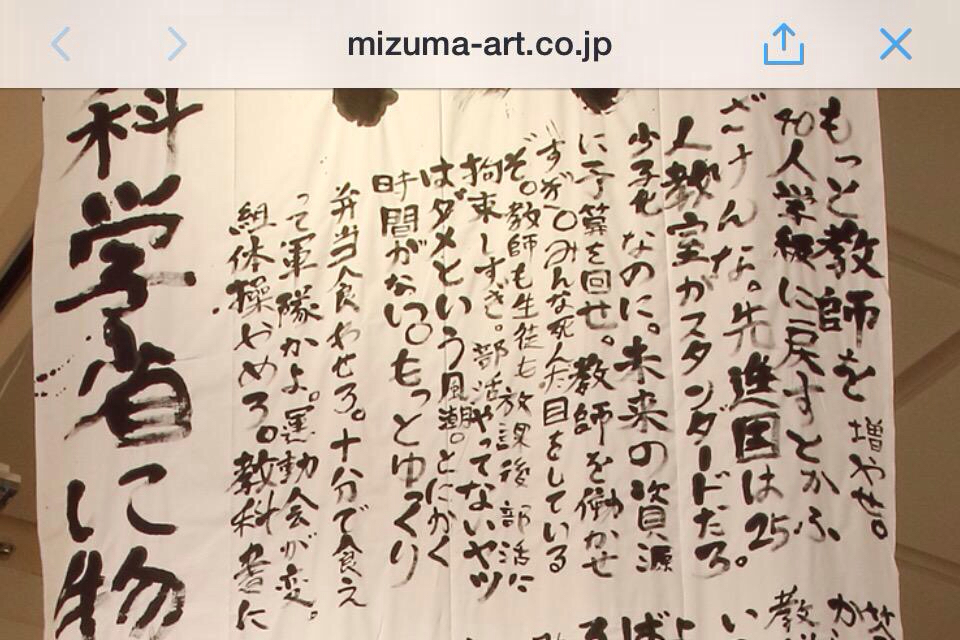 mizuma-art.co.jp
もっと教師を増やせ。
40人学級に戻すとかふ
ざけんな。先進国は25
人教室がスタンダードだろ。
少子化なのに。未来の資源
に予算を回せ。教師を働かせ
すぎ。みんな死んだ目をしている
ぞ。教師も生徒も放課後部活に
拘束しすぎ。部活やってないヤツ
はダメという風潮。とにかく
時間がない。もっとゆっくり
弁当食わせろ。十分で食え
って軍隊かよ。運動会が変。
組体操やめろ。教科書に
科学省に物